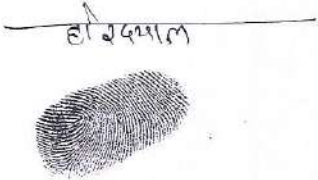 हरिदयाल